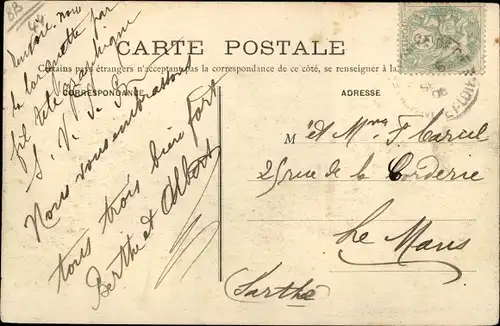 8B
44
CARTE POSTALE
Certains pays étrangers n'acceptent pas la correspondance de ce côté, se renseigner à la
CORRESPONDANCE
ADRESSE
la par
fil télégraphique
S. V.
Nous vous embrassons
tous trois bien fort
Berthe et Albert
M et Mme F.
25 rue de la Corderie
Le Mans
Sarthe